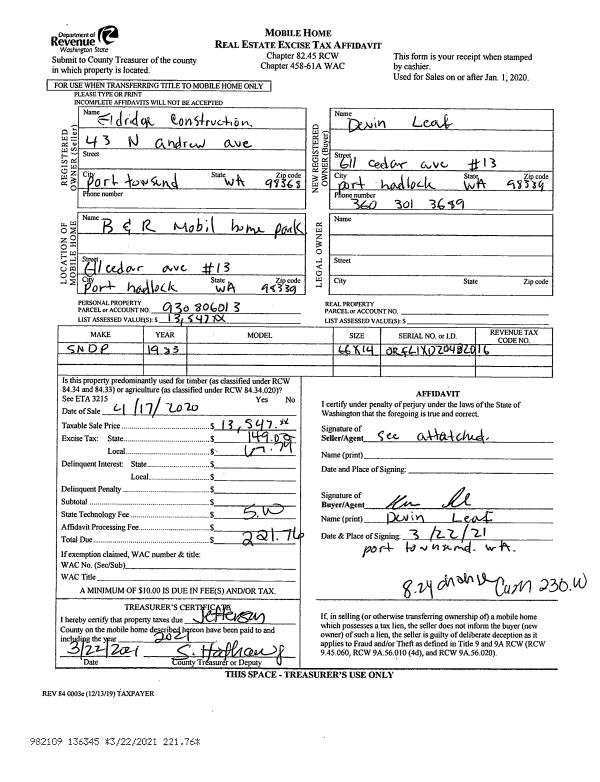 Department of
Revenue
Washington State
Submit to County Treasurer of the county
in which property is located.
MOBILE HOME
REAL ESTATE EXCISE TAX AFFIDAVIT
Chapter 82.45 RCW
Chapter 458-61A WAC
This form is your receipt when stamped
by cashier.
Used for Sales on or after Jan. 1, 2020.
FOR USE WHEN TRANSFERRING TITLE TO MOBILE HOME ONLY
PLEASE TYPE OR PRINT
INCOMPLETE AFFIDAVITS WILL NOT BE ACCEPTED
REGISTERED
OWNER (Seller)
Name
Eldridge Construction
43 N andrew ave
Street
City State Zip code
Port townsend WA 98368
Phone number
NEW REGISTERED
OWNER (Buyer)
Name
Devin Leaf
Street
611 cedar ave #13
City State Zip code
port hadlock WA 98339
Phone number
360 301 3689
LOCATION OF
MOBILE HOME
Name
B & R Mobil home park
Street
611 cedar ave #13
City State Zip code
Port hadlock WA 98339
LEGAL OWNER
Name
Street
City State Zip code
PERSONAL PROPERTY
PARCEL or ACCOUNT NO. 930806013
LIST ASSESSED VALUE(S): $ 13,547.xx
REAL PROPERTY
PARCEL or ACCOUNT NO.
LIST ASSESSED VALUE(S): $
MAKE YEAR MODEL SIZE SERIAL NO. or I.D. REVENUE TAX CODE NO.
SNDP 1983 66X14
Is this property predominantly used for timber (as classified under RCW
84.34 and 84.33) or agriculture (as classified under RCW 84.34.020)?
See ETA 3215 Yes No
Date of Sale 4/17/2020
Taxable Sale Price $ 13,547.xx
Excise Tax: State $ 149.02
Local $ 67.74
Delinquent Interest: State $
Local $
Delinquent Penalty $
Subtotal $
State Technology Fee $ 5.00
Affidavit Processing Fee $
Total Due $ 221.76
If exemption claimed, WAC number & title:
WAC No. (Sec/Sub)
WAC Title
A MINIMUM OF $10.00 IS DUE IN FEE(S) AND/OR TAX.
AFFIDAVIT
I certify under penalty of perjury under the laws of the State of
Washington that the foregoing is true and correct.
Signature of
Seller/Agent see attatched.
Name (print)
Date and Place of Signing:
Signature of
Buyer/Agent
Name (print) Devin Leaf
Date & Place of Signing: 3/22/21
port townsend. wa.
8.24 change Cash 230.00
TREASURER'S CERTIFICATE
I hereby certify that property taxes due Jefferson
County on the mobile home described hereon have been paid to and
including the year 2021
3/22/2021
Date County Treasurer or Deputy
If, in selling (or otherwise transferring ownership of) a mobile home
which possesses a tax lien, the seller does not inform the buyer (new
owner) of such a lien, the seller is guilty of deliberate deception as it
applies to Fraud and/or Theft as defined in Title 9 and 9A RCW (RCW
9.45.060, RCW 9A.56.010 (4d), and RCW 9A.56.020).
THIS SPACE - TREASURER'S USE ONLY
REV 84 0003e (12/13/19) TAXPAYER
982109 136345 *3/22/2021 221.76*